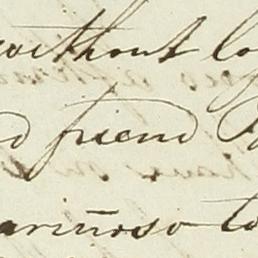 without lo
d friend
ariñoso to